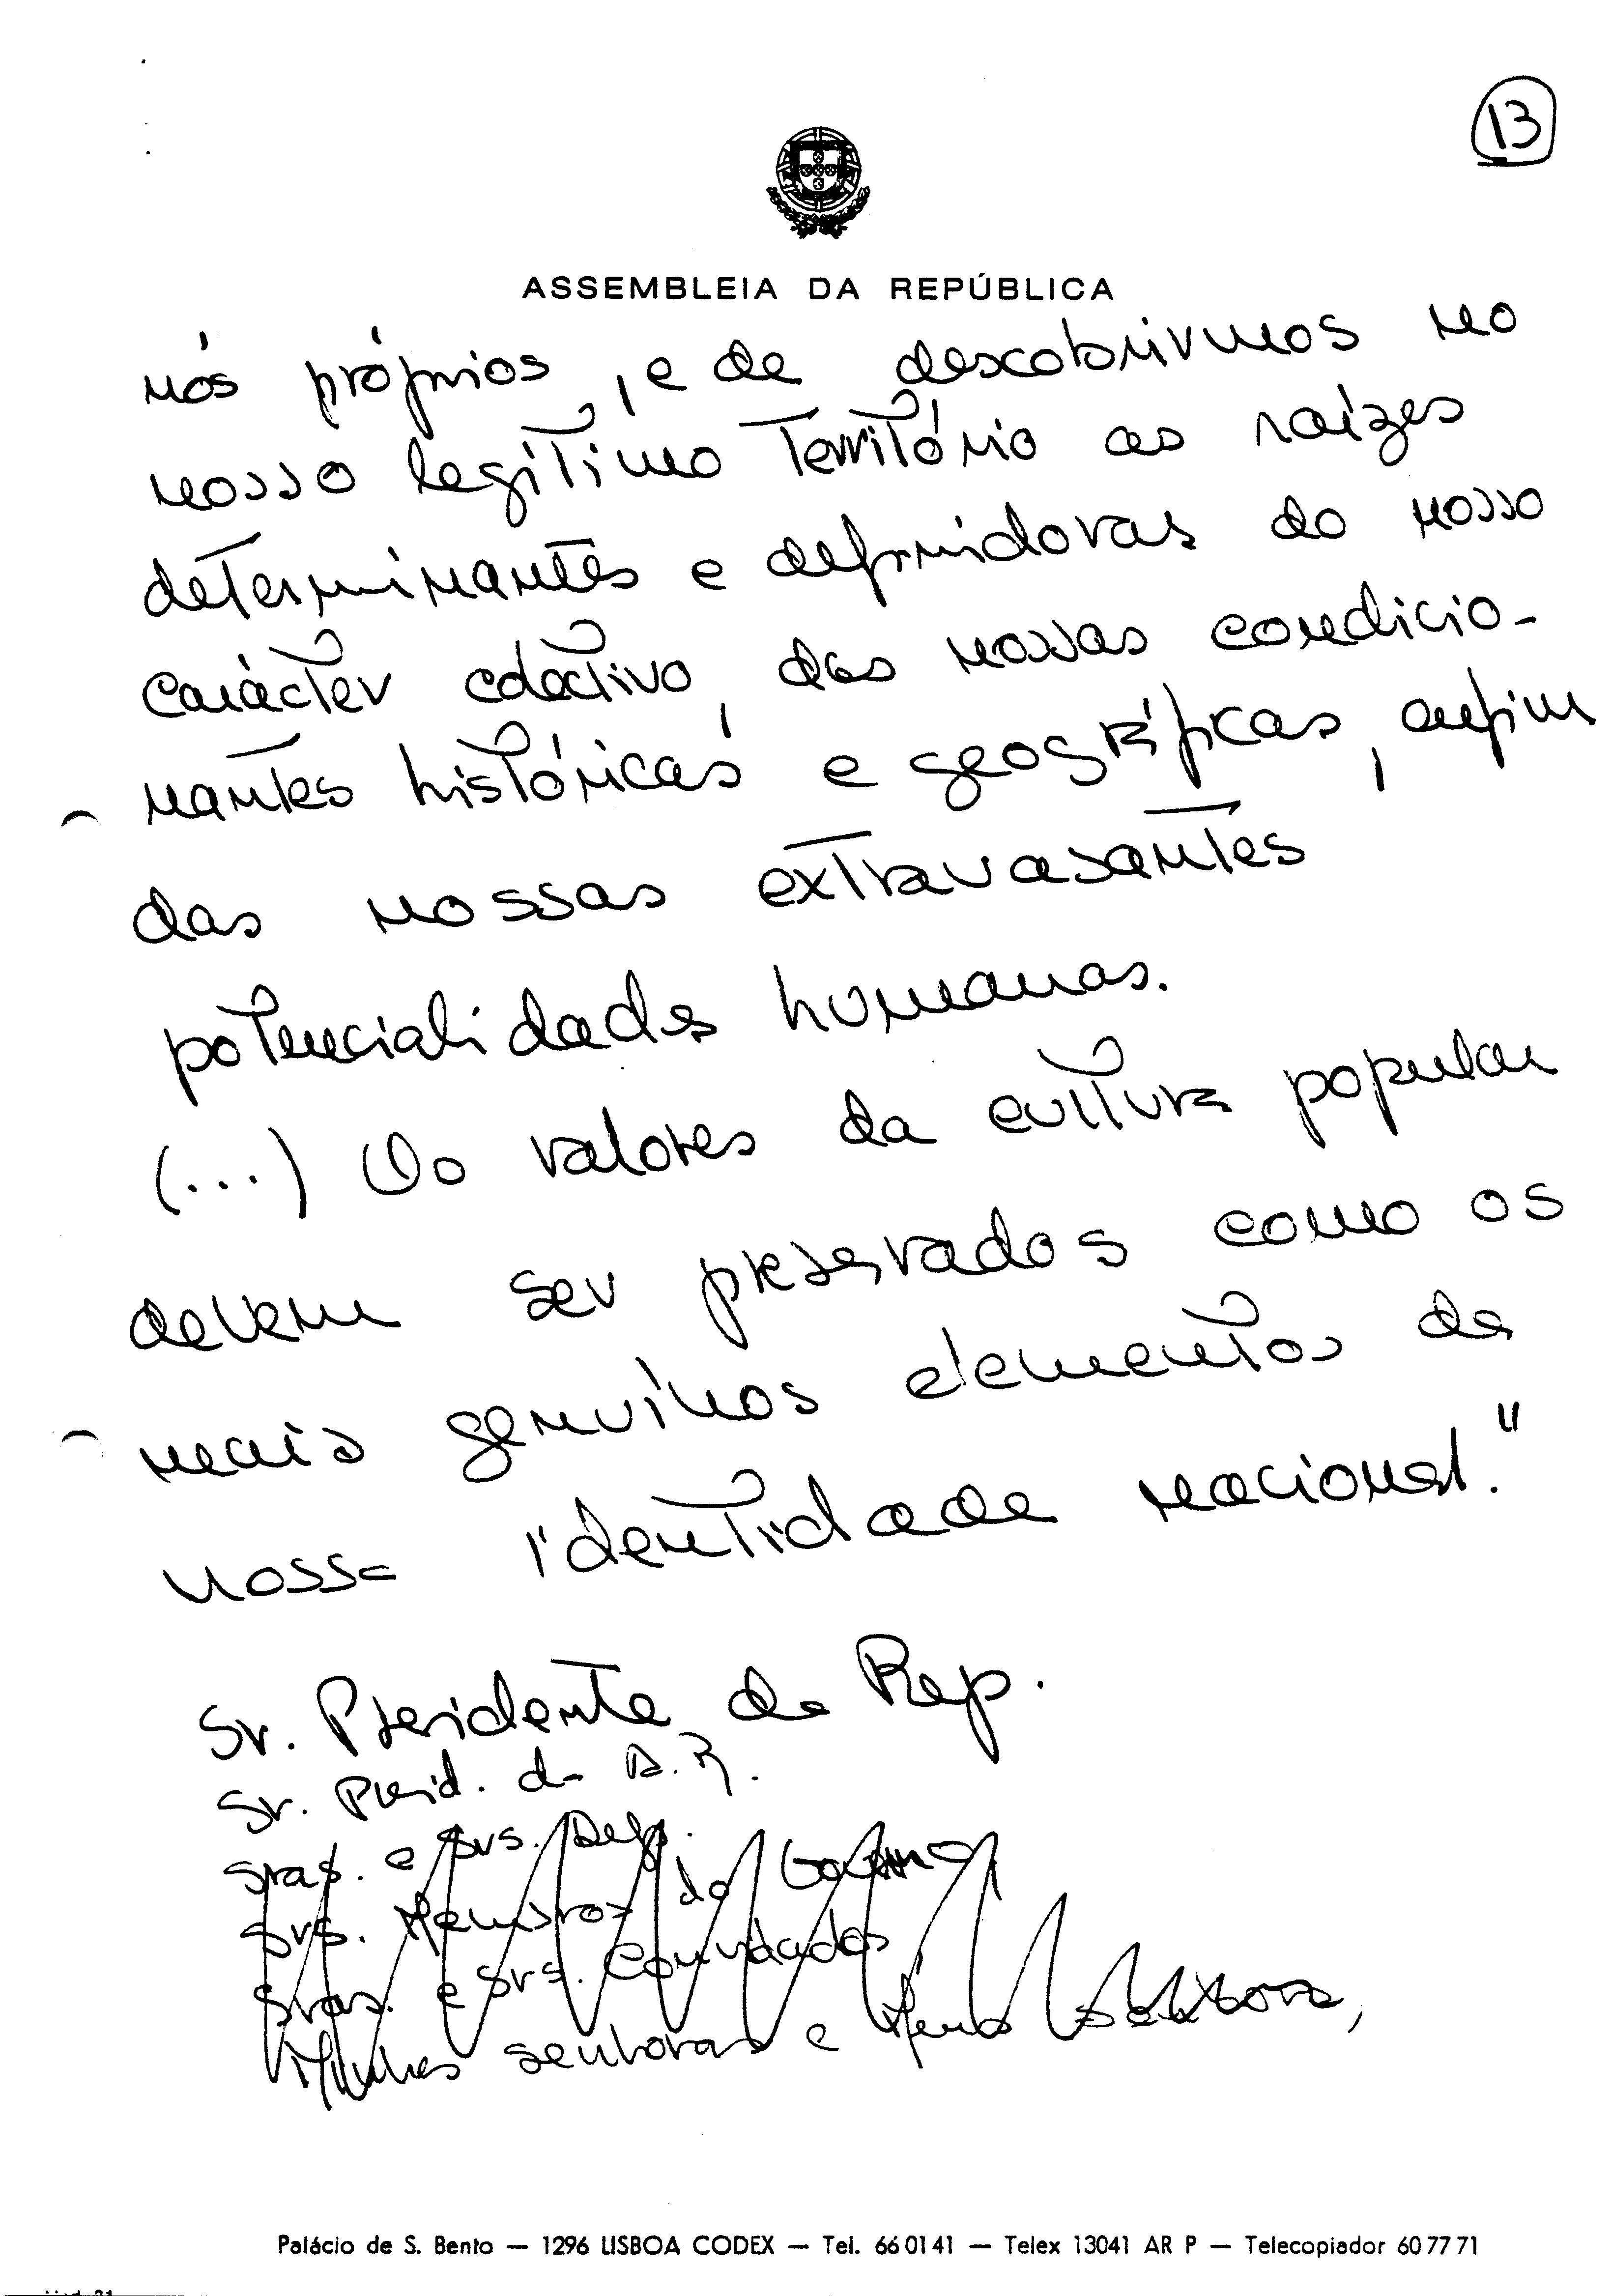 13
ASSEMBLEIA DA REPÚBLICA
nós próprios, e de descobrirmos no
nosso legítimo território as raízes
determinantes e definidoras do nosso
carácter colectivo, das nossas condicio-
nantes históricas e geográficas, enfim
das nossas extravasantes
potencialidades humanas.
(...) Os valores da cultura popular
devem ser preservados como os
mais genuínos elementos da
nossa identidade nacional."
Sr. Presidente da Rep.
Sr. Presid. da A.R.
Sras. e Srs. Dep.
Srs. Membros do Governo,
Sras. e Srs. Convidados
Minhas senhoras e Meus Senhores,
Palácio de S. Bento — 1296 LISBOA CODEX — Tel. 66 01 41 — Telex 13041 AR P — Telecopiador 60 77 71